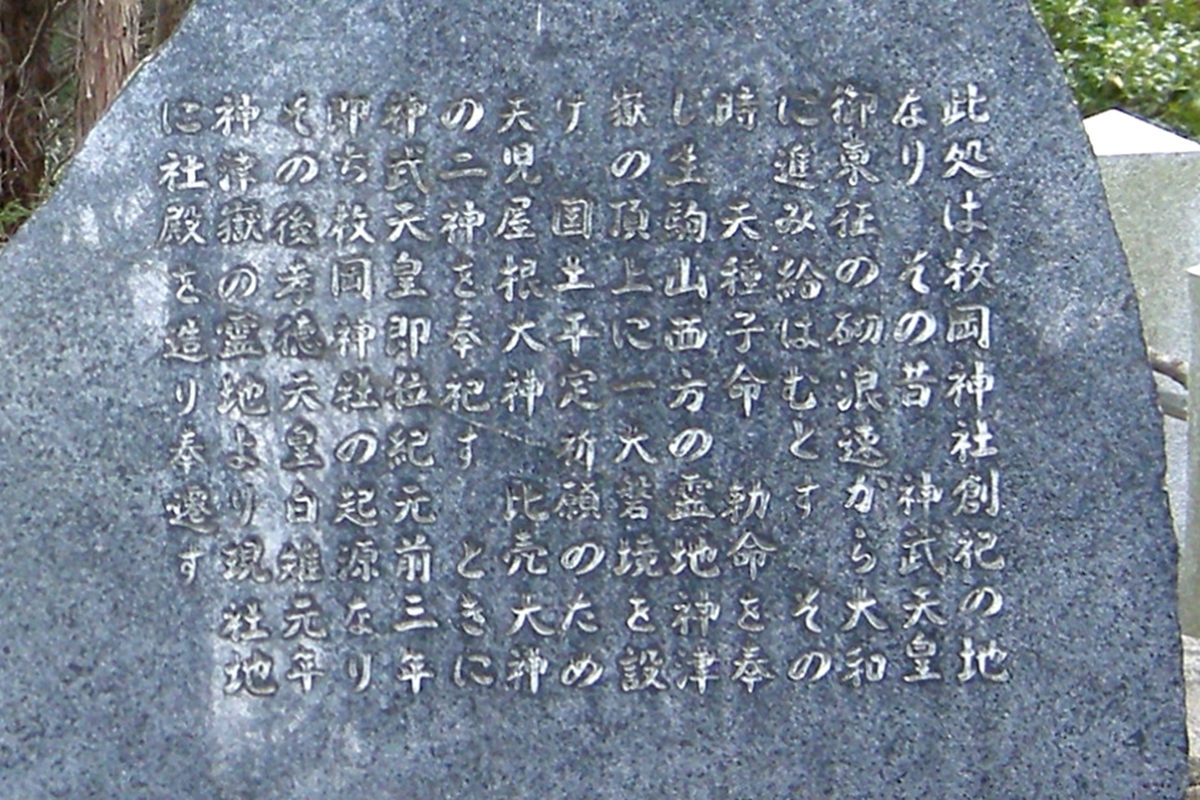 此処は枚岡神社創祀の地
なり その昔 神武天皇
御東征の砌浪速から大和
に進み給はむとす その
時 天種子命 勅命を奉
じ生駒山西方の霊地神津
嶽の頂上に一大磐境を設
け 国土平定祈願のため
天児屋根大神 比売大神
の二神を奉祀す ときに
神武天皇即位紀元前三年
即ち枚岡神社の起源なり
その後孝徳天皇白雉元年
神津嶽の霊地より現社地
に社殿を造り奉遷す